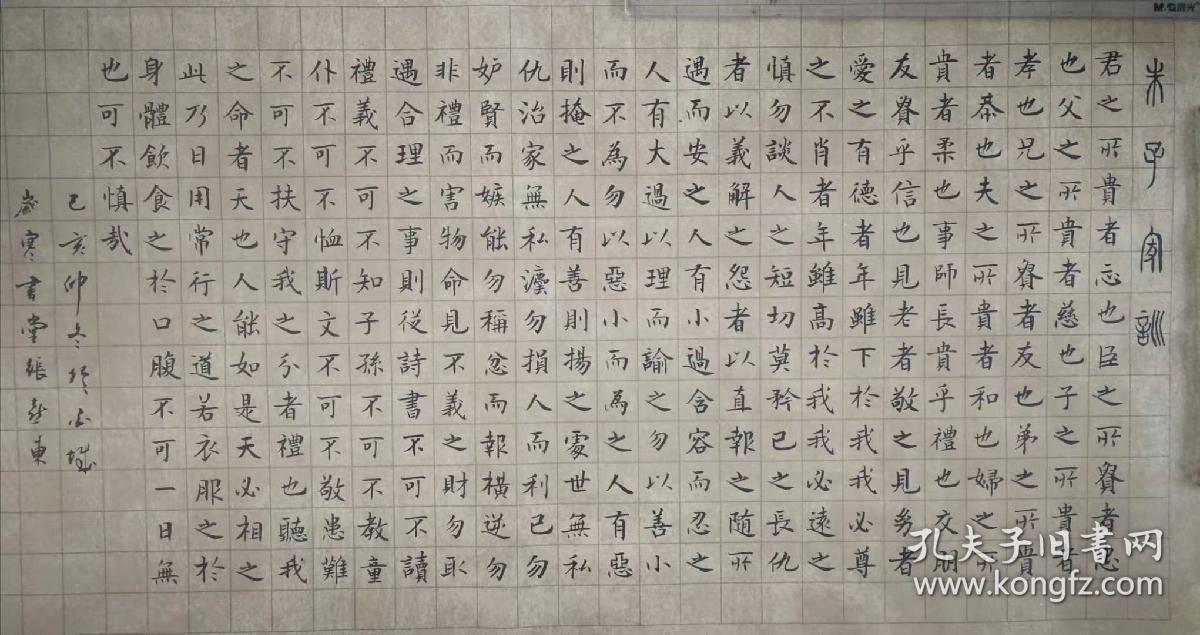 朱子家訓
君之所貴者忘也臣之所貴者忠
也父之所貴者慈也子之所貴者
孝也兄之所貴者友也弟之所貴
者恭也夫之所貴者和也婦之所
貴者柔也事師長貴乎禮也交朋
友貴乎信也見老者敬之見幼者
愛之有德者年雖下於我我必尊
之不肖者年雖高於我我必遠之
慎勿談人之短切莫矜己之長仇
者以義解之怨者以直報之隨所
遇而安之人有小過含容而忍之
人有大過以理而諭之勿以善小
而不為勿以惡小而為之人有惡
則掩之人有善則揚之處世無私
仇治家無私瀆勿損人而利己勿
妒賢而嫉能勿稱忿而報橫逆勿
非禮而害物命見不義之財勿取
遇合理之事則從詩書不可不讀
禮義不可不知子孫不可不教童
仆不可不恤斯文不可不敬患難
不可不扶守我之分者禮也聽我
之命者天也人能如是天必相之
此乃日用常行之道若衣服之於
身體飲食之於口腹不可一日無
也可不慎哉
己亥仲冬於古城
歲寒書堂張
東
M&G晨光
孔夫子旧书网
www.kongfz.com